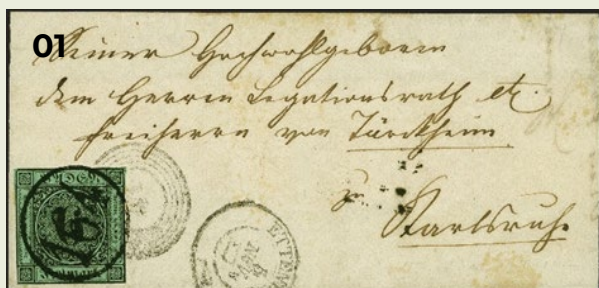 01
Seiner Hochwohlgeboren
dem Herren Legationsrath etc.
Freiherrn von Türckheim
zu
Karlsruhe
164
ETTEN